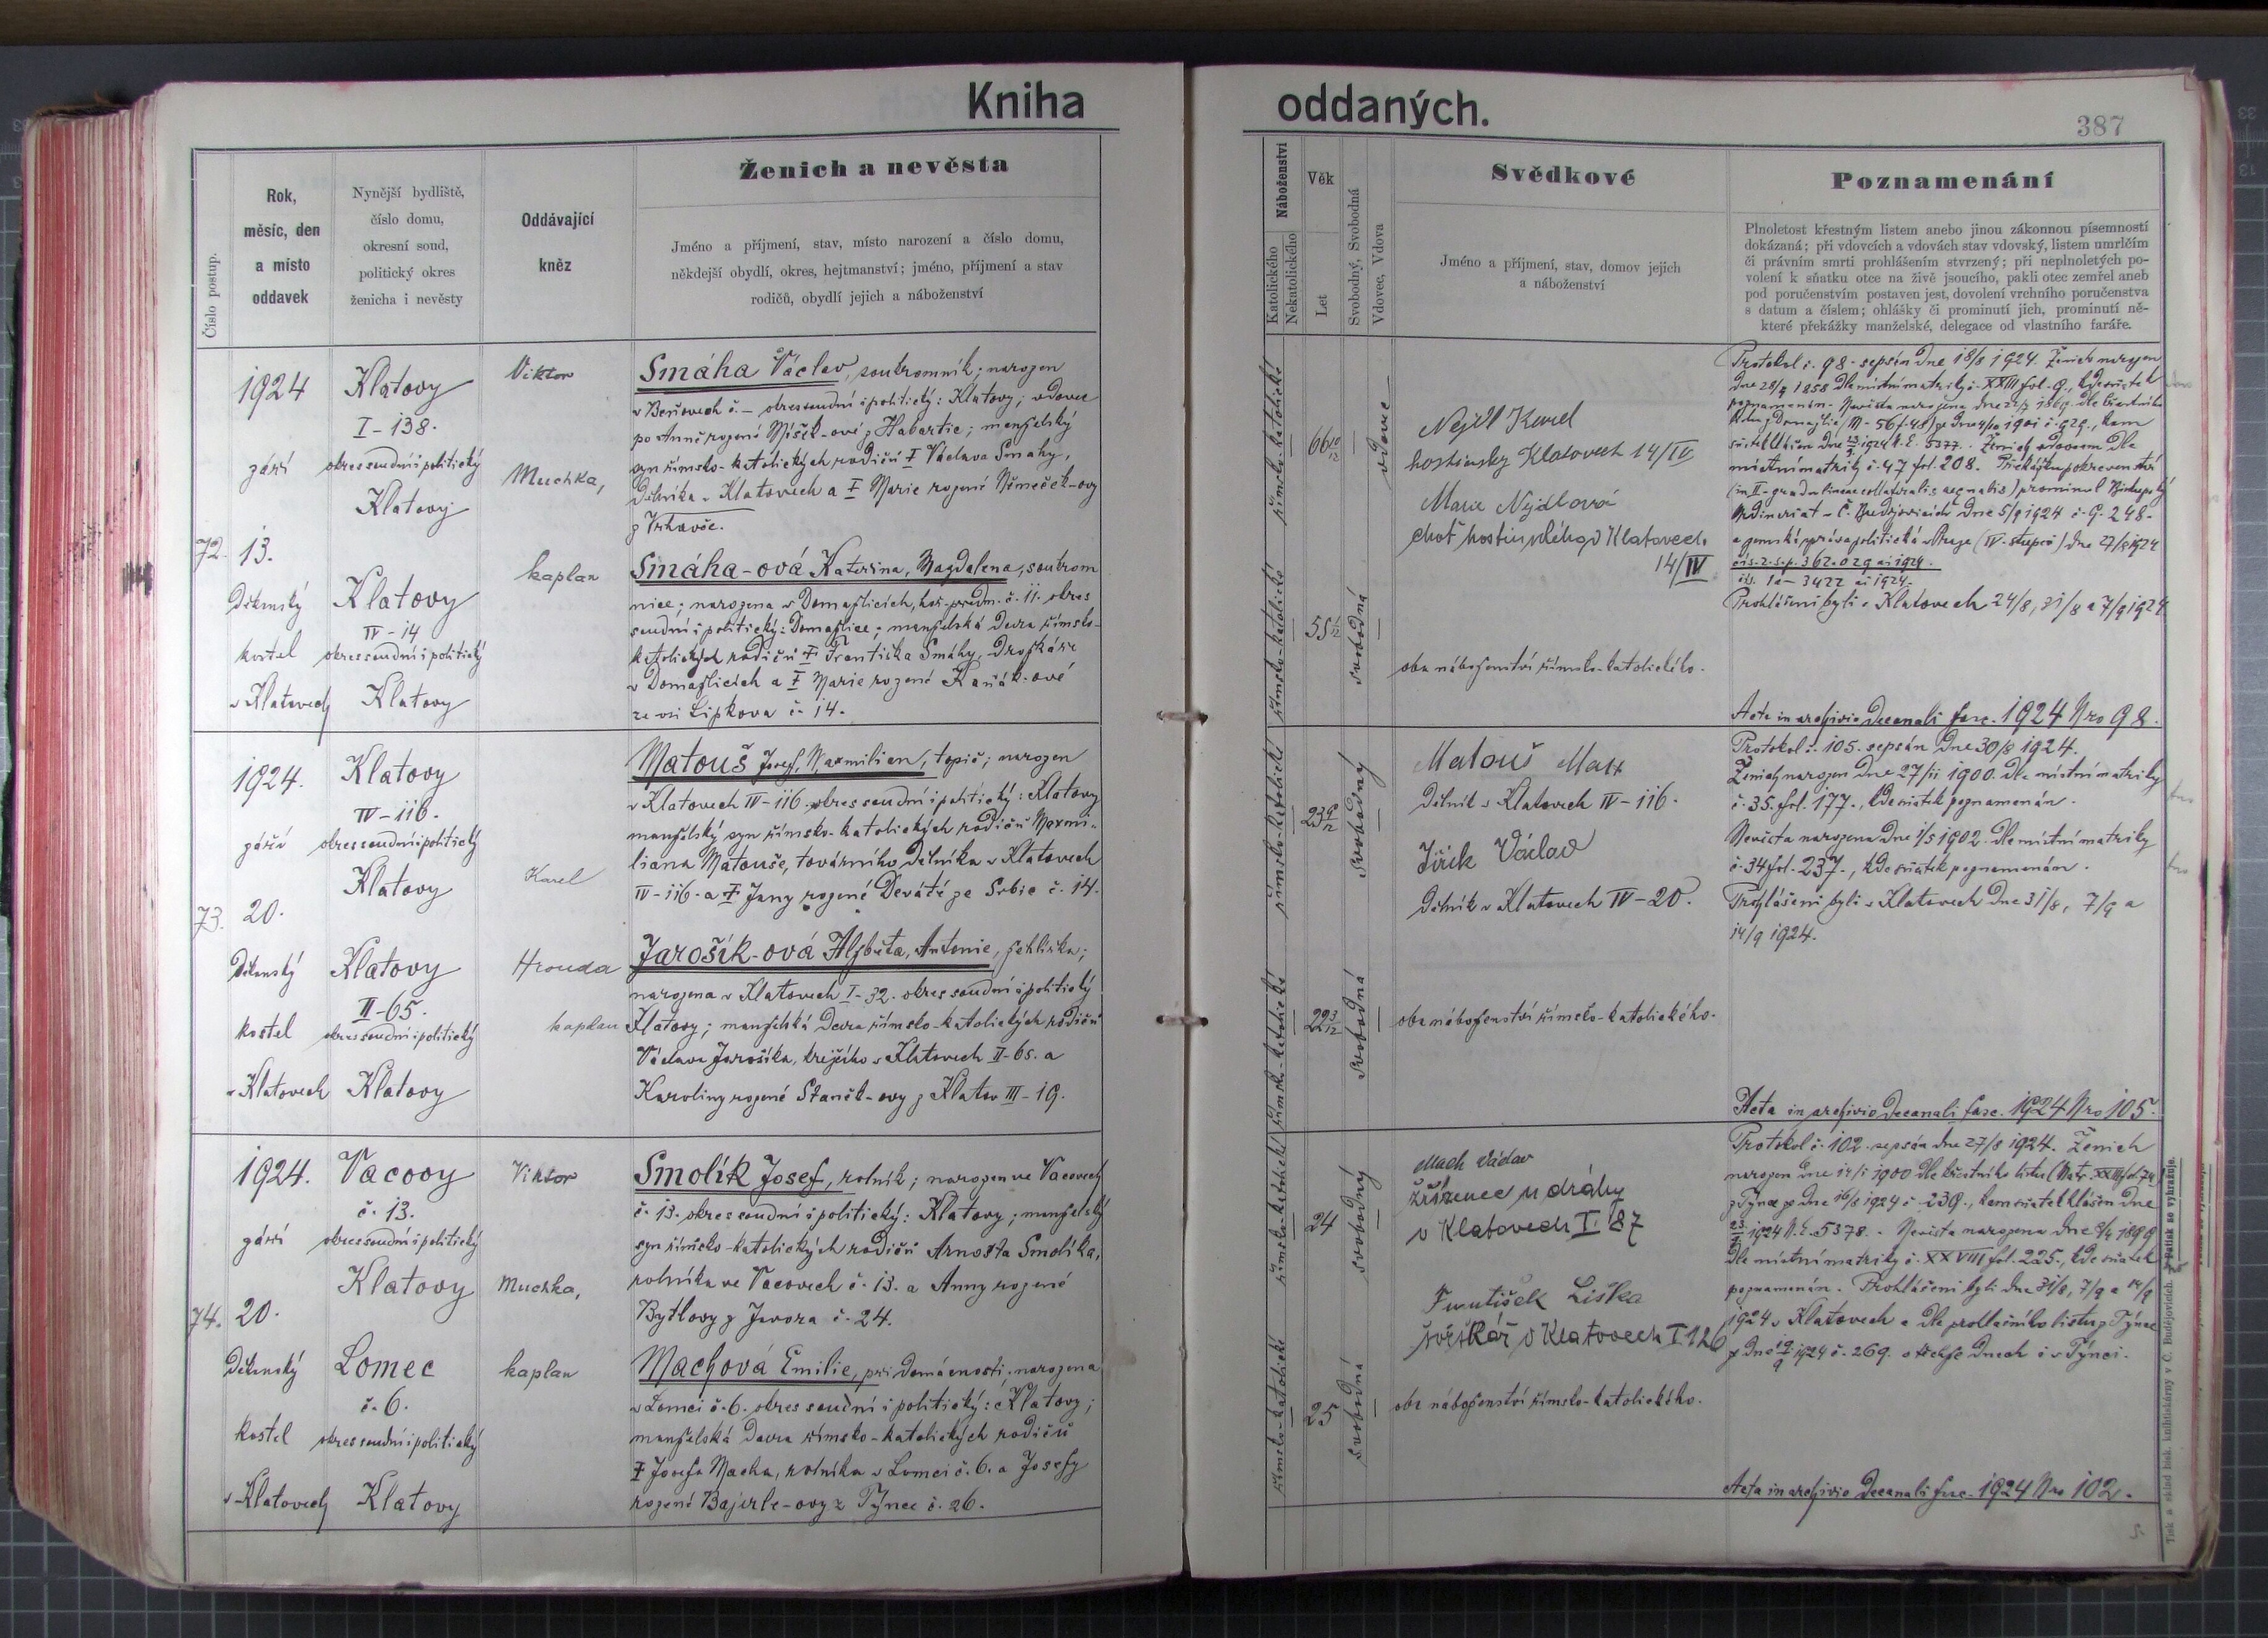 Kniha oddaných.
387
Číslo postup.
Rok,
měsíc, den
a místo
oddavek
Nynější bydliště,
číslo domu,
okresní soud,
politický okres
ženicha i nevěsty
Oddávající
kněz
Ženich a nevěsta
Jméno a příjmení, stav, místo narození a číslo domu,
někdejší obydlí, okres, hejtmanství; jméno, příjmení a stav
rodičů, obydlí jejich a náboženství
Náboženství
Katolického
Nekatolického
Věk
Let
Svobodný, Svobodná
Vdovec, Vdova
Svědkové
Jméno a příjmení, stav, domov jejich
a náboženství
Poznamenání
Plnoletost křestným listem anebo jinou zákonnou písemností
dokázaná; při vdovcích a vdovách stav vdovský, listem umrlčím
či právním smrti prohlášením stvrzený; při neplnoletých po-
volení k sňatku otce na živě jsoucího, pakli otec zemřel aneb
pod poručenstvím postaven jest, dovolení vrchního poručenstva
s datum a číslem; ohlášky či prominutí jich, prominutí ně-
které překážky manželské, delegace od vlastního faráře.
72.
1924
září
13.
Děkanský
kostel
v Klatovech
Klatovy
I-138.
okres soudní i politický
Klatovy
Klatovy
IV-14
okres soudní i politický
Klatovy
Viktor
Muchka,
kaplan
Smáha Václav, soukromník; narozen
v Beňovech č. – okres soudní i politický: Klatovy; vdovec
po Anně rozené Míšek-ové z Habartic; manželský
syn římsko-katolických rodičů † Václava Smáhy,
dělníka v Klatovech a † Marie rozené Němeček-ovy
z Vrhavče.
Smáha-ová Kateřina, Magdalena, soukrom
nice; narozena v Domažlicích, hoř. předm. č. 11. okres
soudní i politický: Domažlice; manželská dcera římsko-
katolických rodičů † Františka Smáhy, drožkáře
v Domažlicích a † Marie rozené Kaňák-ové
ze vsi Lipkova č. 14.
římsko-katolické
66 10/12
vdovec
římsko-katolické
55 1/12
svobodná
Nejdl Karel
hostinský Klatovech 14/IV
Marie Nejdlová
choť hostinského v Klatovech
14/IV
oba náboženství římsko-katolického.
Protokol č. 98. sepsán dne 18/8 1924. Ženich narozen
dne 28/9 1858 dle místní matriky č. XXIII fol. 9., kde sňatek
poznamenán. Nevěsta narozena dne 22/7 1869 dle křestního
místní matriky č. 47 fol. 208. Překážku pokrevenství
(in II-gradu lineae collateralis aequalis) prominul Biskupský
Ordinariát v Č. Budějovicích dne 5/9 1924 č. 9248.
a zemská správa politická v Praze (IV. stupeň) dne 27/8 1924
Prohlášeni byli v Klatovech 24/8, 31/8 a 7/9 1924
Acta in archivio Decanali fasc. 1924 Nro 98.
73.
1924.
září
20.
Děkanský
kostel
v Klatovech
Klatovy
IV-116.
okres soudní i politický
Klatovy
Klatovy
II-65.
okres soudní i politický
Klatovy
Karel
Hrouda
kaplan
Matouš Josef, Maxmilian, topič; narozen
v Klatovech IV-116. okres soudní i politický: Klatovy
manželský syn římsko-katolických rodičů Maxmi-
liana Matouše, továrního dělníka v Klatovech
IV-116. a † Jany rozené Deváté ze Srbic č. 14.
Jarošík-ová Alžběta, Antonie, žehlířka;
narozena v Klatovech I-32. okres soudní i politický
Klatovy; manželská dcera římsko-katolických rodičů
Václava Jarošíka, krejčího v Klatovech II-65. a
Karoliny rozené Staněk-ovy z Klatov III-19.
římsko-katolické
23 9/12
svobodný
římsko-katolické
22 3/12
svobodná
Matouš Max
dělník v Klatovech IV-116.
Jiřík Václav
Dělník v Klatovech IV-20.
oba náboženství římsko-katolického.
Protokol č. 105. sepsán dne 30/8 1924.
Ženich narozen dne 27/11 1900. dle místní matriky
č. 35. fol. 177., kde sňatek poznamenán.
Nevěsta narozena dne 1/5 1902. dle místní matriky
č. 34 fol. 237., kde sňatek poznamenán.
Prohlášeni byli v Klatovech dne 31/8, 7/9 a
14/9 1924.
Acta in archivio Decanali fasc. 1924 Nro 105.
74.
1924.
září
20.
Děkanský
kostel
v Klatovech
Vacovy
č. 13.
okres soudní i politický
Klatovy
Lomec
č. 6.
okres soudní i politický
Klatovy
Viktor
Muchka,
kaplan
Smolík Josef, rolník; narozen ve Vacovech
č. 13. okres soudní i politický: Klatovy; manželský
syn římsko-katolických rodičů Arnošta Smolíka,
rolníka ve Vacovech č. 13. a Anny rozené
Bytlovy z Javora č. 24.
Machová Emilie, při domácnosti; narozena
v Lomci č. 6. okres soudní i politický: Klatovy;
manželská dcera římsko-katolických rodičů
† Josefa Macha, rolníka v Lomci č. 6. a Josefy
rozené Bajerle-ovy z Týnce č. 26.
římsko-katolické
24
svobodný
římsko-katolické
25
svobodná
Mach Václav
zřízenec u dráhy
v Klatovech I 87
František Liška
v Klatovech I 126
oba náboženství římsko-katolického.
Protokol č. 102. sepsán dne 27/8 1924. Ženich
narozen dne 14/1 1900 dle křestního listu (Matr. XXIII fol. 74)
z Týnce ze dne 16/8 1924 č. 239., kam sňatek hlášen dne
1924 N.E. 5378. Nevěsta narozena dne 9/4 1899
dle místní matriky č. XXVIII fol. 225., kde sňatek
poznamenán. Prohlášeni byli dne 31/8, 7/9 a 14/9
1924 v Klatovech a dle prohlačního listu z Týnce
ze dne 19/9 1924 č. 269. v těchže dnech i v Týnci.
Acta in archivio Decanali fasc. 1924 Nro 102.
Tisk a sklad bisk. knihtiskárny v Č. Budějovicích. Patisk se vyhražuje.